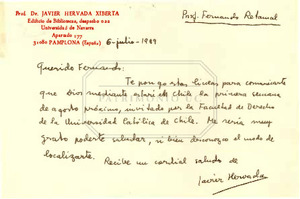 Prof. Dr. JAVIER HERVADA XIBERTA
Edificio de Bibliotecas, despacho
Universidad de Navarra
Apartado 177
31080 PAMPLONA (España)
Prof. Fernando Retamal
6-julio-1989
Querido Fernando:
Te pongo estas líneas para comunicarte
que Dios mediante estaré en Chile la primera semana
de agosto próximo, invitado por la Facultad de Derecho
de la Universidad Católica de Chile. Me sería muy
grato poderte saludar, si bien desconozco el modo de
localizarte.
Recibe un cordial saludo de
Javier Hervada
PATRIMONIO